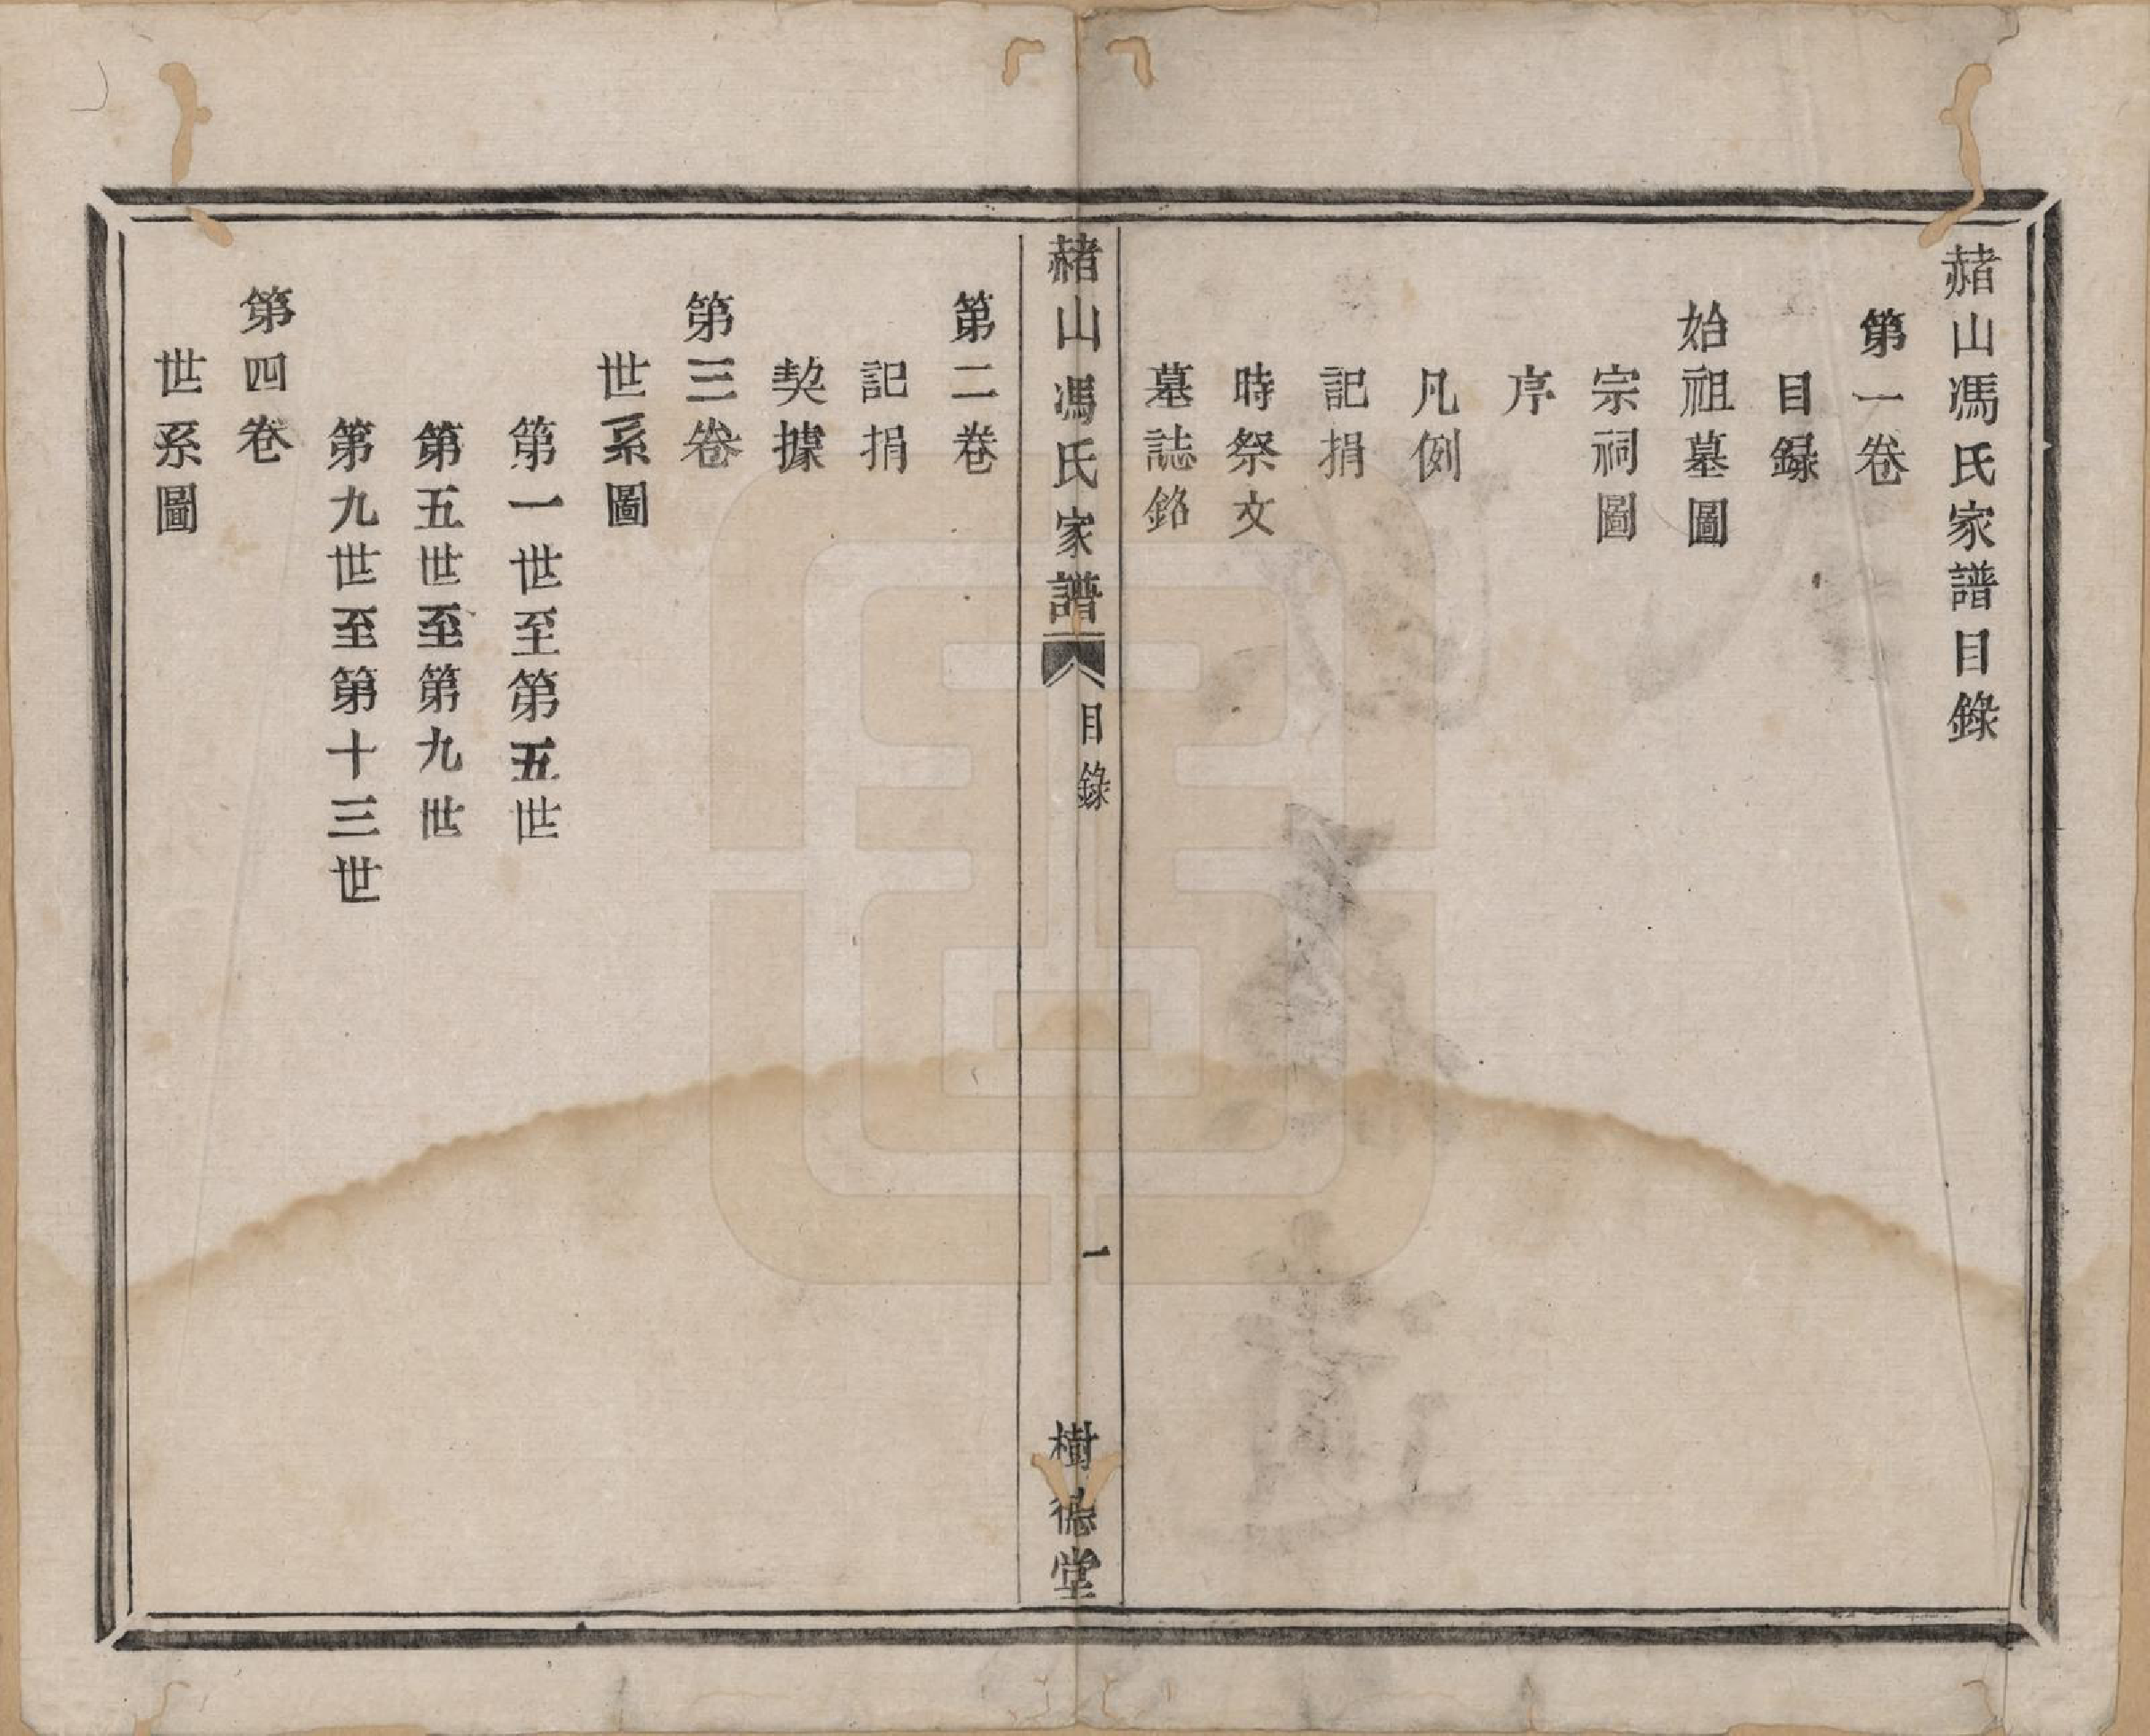 赭山馮氏家譜目錄
第一卷
目録
始祖墓圖
宗祠圖
序
凡例
記捐
時祭文
墓誌銘
赭山馮氏家譜
目錄
一
樹德堂
第二卷
記捐
契據
第三卷
世系圖
第一世至第五世
第五世至第九世
第九世至第十三世
第四卷
世系圖